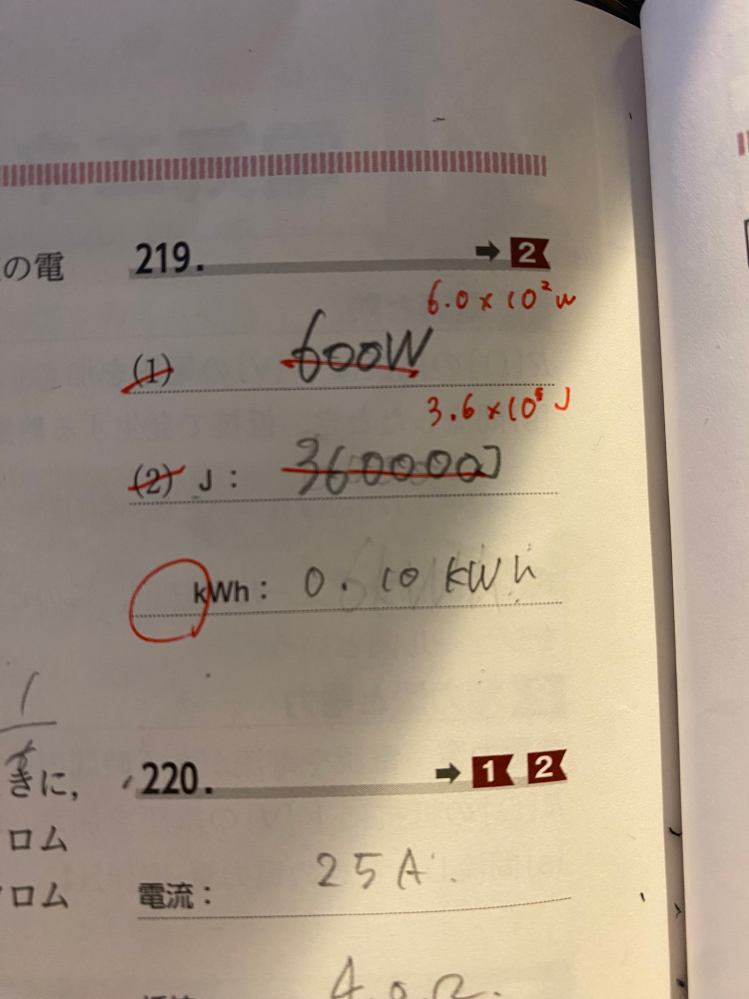 の電
219. ➡ 2
6.0 × 10² W
(1) 600W
3.6 × 10⁵ J
(2) J: 360000J
kWh: 0.10 kWh
きに,
220. ➡ 1 2
ロム
ロム
電流: 25A